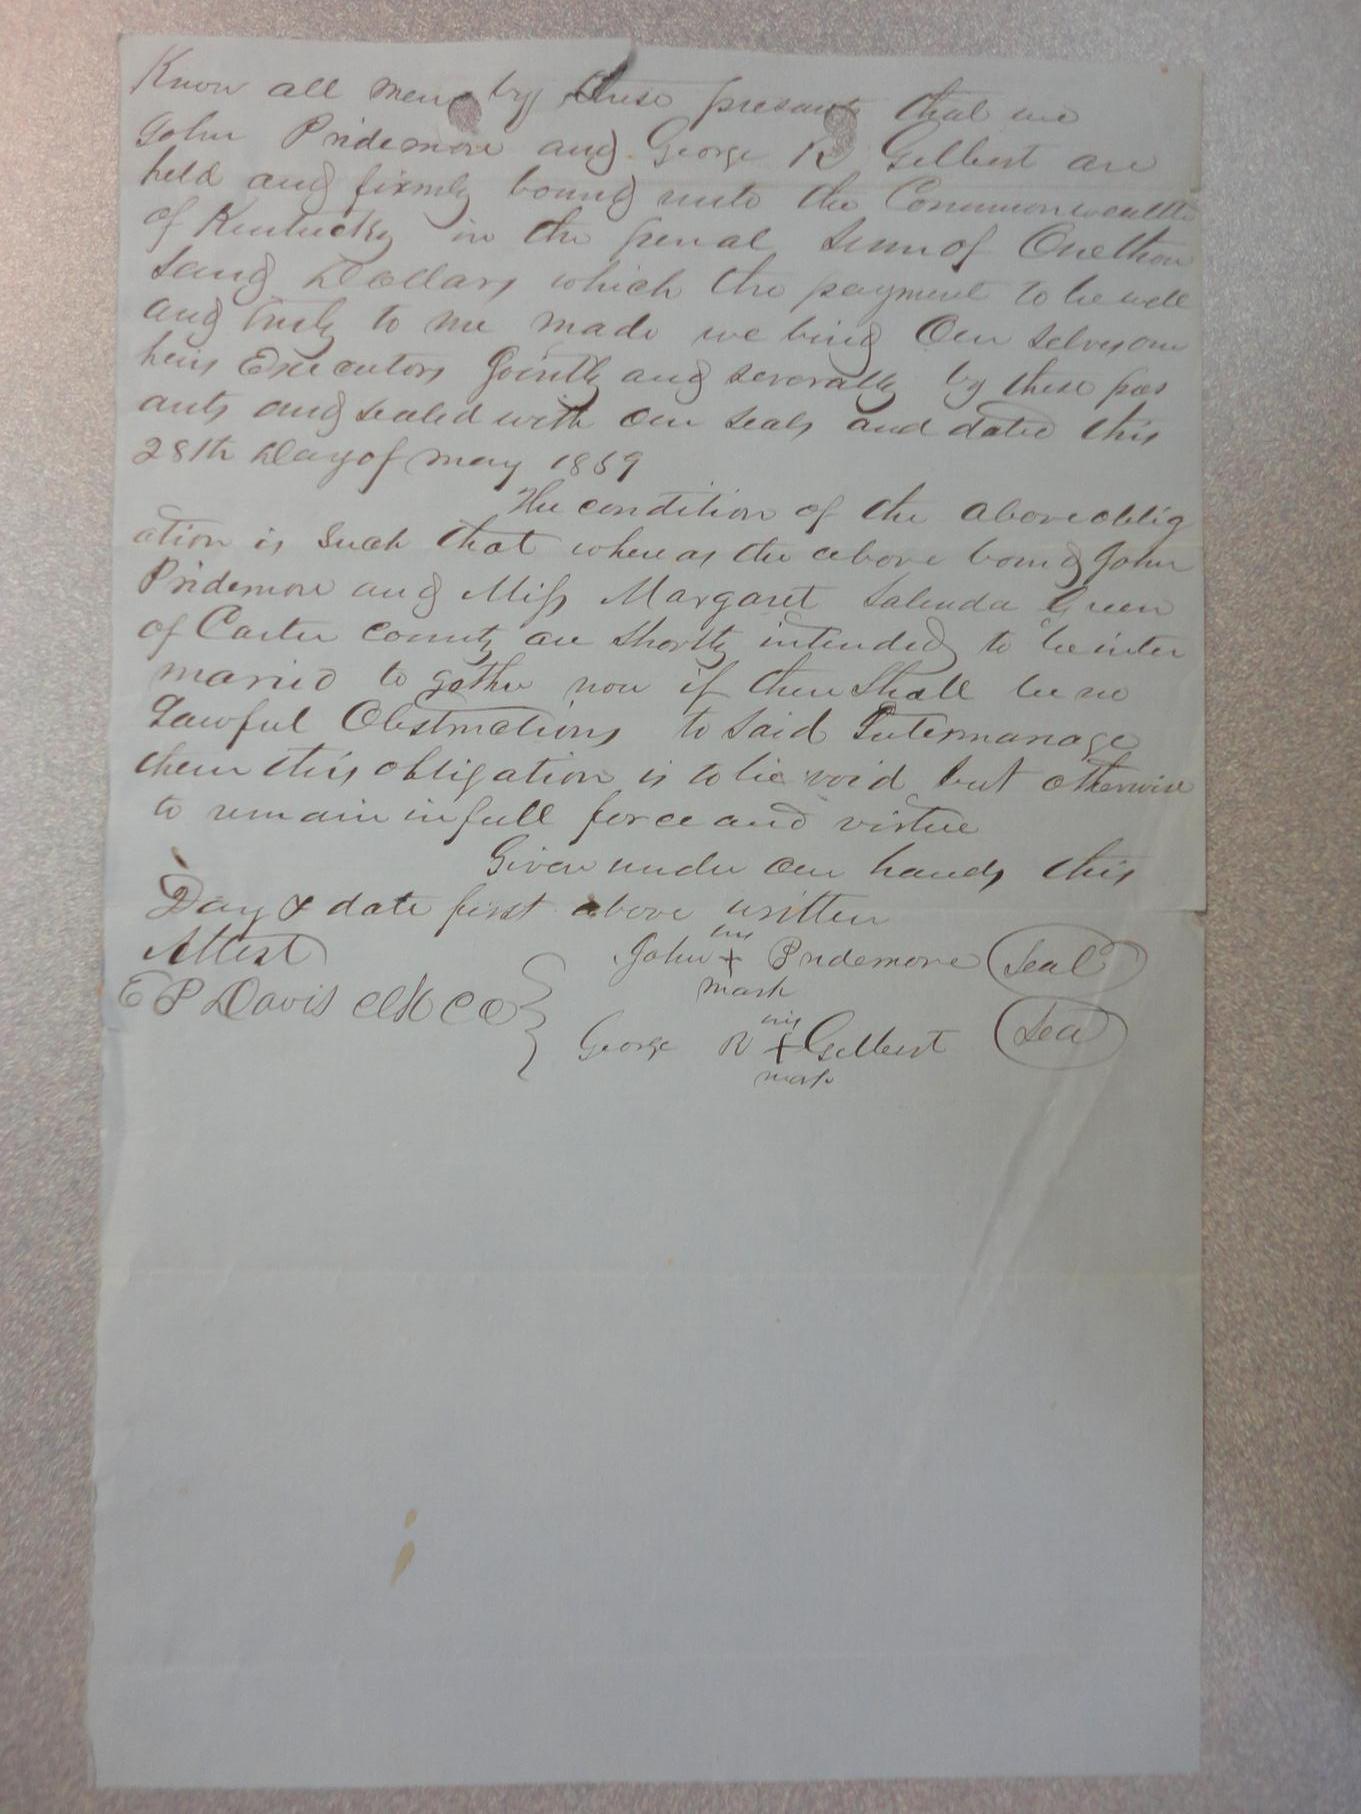 Know all men by these presants that we
John Pridemore and George R Gilbert are
held and firmly bound unto the Commonwealth
of Kentucky in the penal sum of One thou
sand Dollars which the payment to be well
and truly to me made we bind Our selves our
heirs Executors Jointly and severally by these pres
ants and sealed with our seals and dated this
28th Day of may 1869
The condition of the above oblig
ation is such that where as the above bound John
Pridemore and Miss Margaret Salinda Green
of Carter county are shortly intended to be inter
married to gether now if there shall be no
Lawful Obstructions to said Intermarriage
then this obligation is to be void but otherwise
to remain in full force and virtue
Given under our hands this
Day & date first above written
Attest
his
John + Pridemore Seal
mark
E P Davis clk CC
his
George R + Gilbert Seal
mark